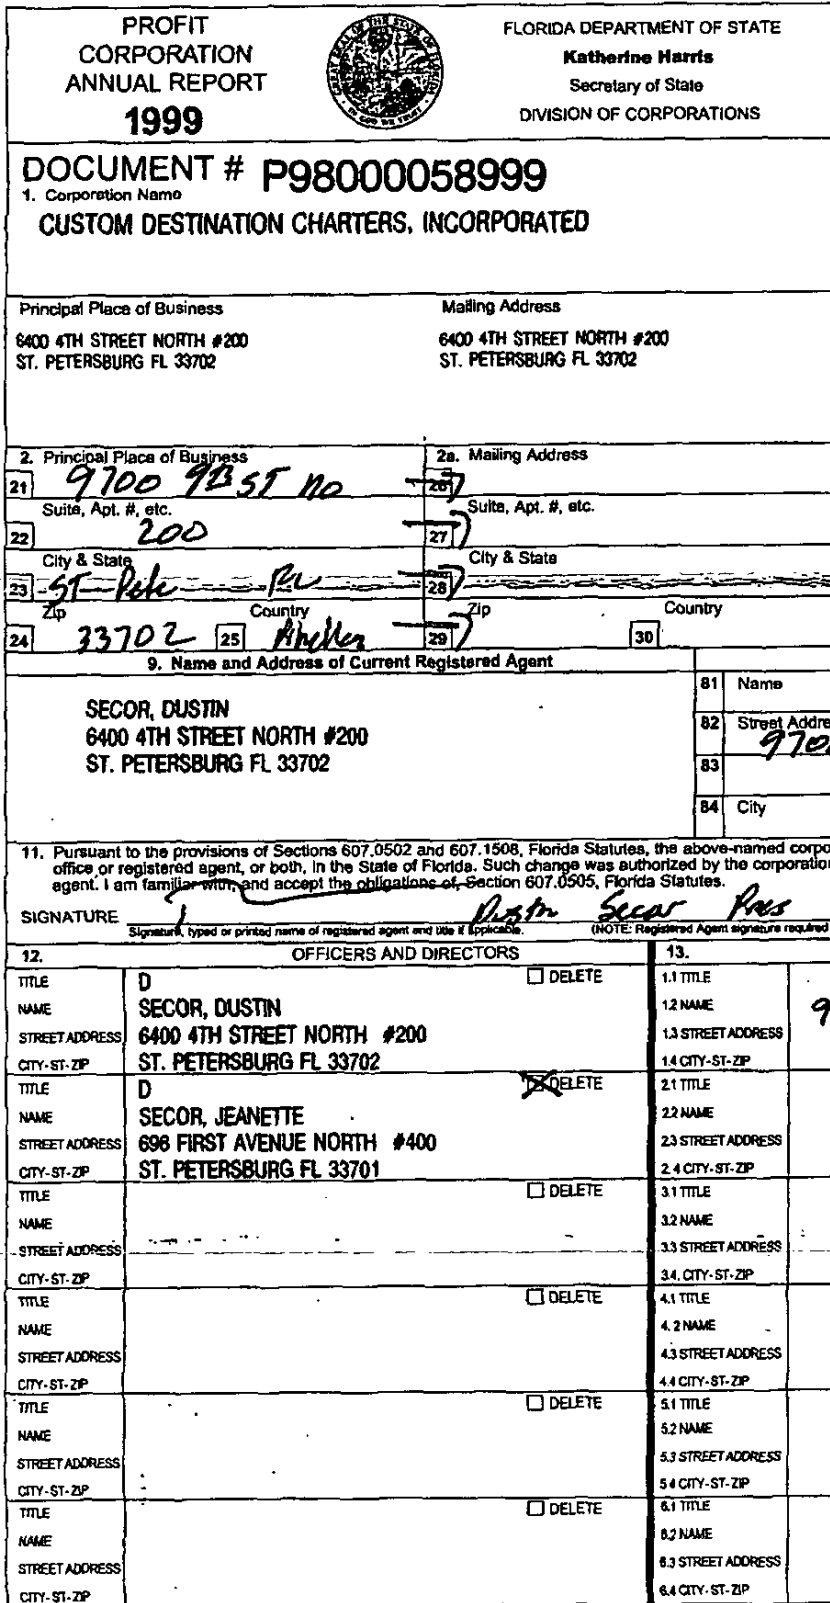 PROFIT
CORPORATION
ANNUAL REPORT
1999
GREAT SEAL OF THE STATE OF FLORIDA
IN GOD WE TRUST
FLORIDA DEPARTMENT OF STATE
Katherine Harris
Secretary of State
DIVISION OF CORPORATIONS
DOCUMENT # P98000058999
1. Corporation Name
CUSTOM DESTINATION CHARTERS, INCORPORATED
Principal Place of Business
Mailing Address
6400 4TH STREET NORTH #200
ST. PETERSBURG FL 33702
6400 4TH STREET NORTH #200
ST. PETERSBURG FL 33702
2. Principal Place of Business
2a. Mailing Address
21 9700 ST no
26
Suite, Apt. #, etc.
Suite, Apt. #, etc.
22 200
27
City & State
City & State
23 ST Pete
28
Zip
Country
Zip
Country
24 33702 25
29
30
9. Name and Address of Current Registered Agent
SECOR, DUSTIN
6400 4TH STREET NORTH #200
ST. PETERSBURG FL 33702
81 Name
82 Street Addre
970
83
84 City
11. Pursuant to the provisions of Sections 607.0502 and 607.1508, Florida Statutes, the above-named corpo
office or registered agent, or both, in the State of Florida. Such change was authorized by the corporation
agent. I am familiar with, and accept the obligations of, Section 607.0505, Florida Statutes.
SIGNATURE Dustin Secor Pres
Signature, typed or printed name of registered agent and title if applicable. (NOTE: Registered Agent signature required
12. OFFICERS AND DIRECTORS
13.
TITLE D DELETE
NAME SECOR, DUSTIN
STREET ADDRESS 6400 4TH STREET NORTH #200
CITY-ST-ZIP ST. PETERSBURG FL 33702
1.1 TITLE
1.2 NAME 9
1.3 STREET ADDRESS
1.4 CITY-ST-ZIP
TITLE D DELETE
NAME SECOR, JEANETTE
STREET ADDRESS 696 FIRST AVENUE NORTH #400
CITY-ST-ZIP ST. PETERSBURG FL 33701
2.1 TITLE
2.2 NAME
2.3 STREET ADDRESS
2.4 CITY-ST-ZIP
TITLE DELETE
NAME
STREET ADDRESS
CITY-ST-ZIP
3.1 TITLE
3.2 NAME
3.3 STREET ADDRESS
3.4. CITY-ST-ZIP
TITLE DELETE
NAME
STREET ADDRESS
CITY-ST-ZIP
4.1 TITLE
4.2 NAME
4.3 STREET ADDRESS
4.4 CITY-ST-ZIP
TITLE DELETE
NAME
STREET ADDRESS
CITY-ST-ZIP
5.1 TITLE
5.2 NAME
5.3 STREET ADDRESS
5.4 CITY-ST-ZIP
TITLE DELETE
NAME
STREET ADDRESS
CITY-ST-ZIP
6.1 TITLE
6.2 NAME
6.3 STREET ADDRESS
6.4 CITY-ST-ZIP